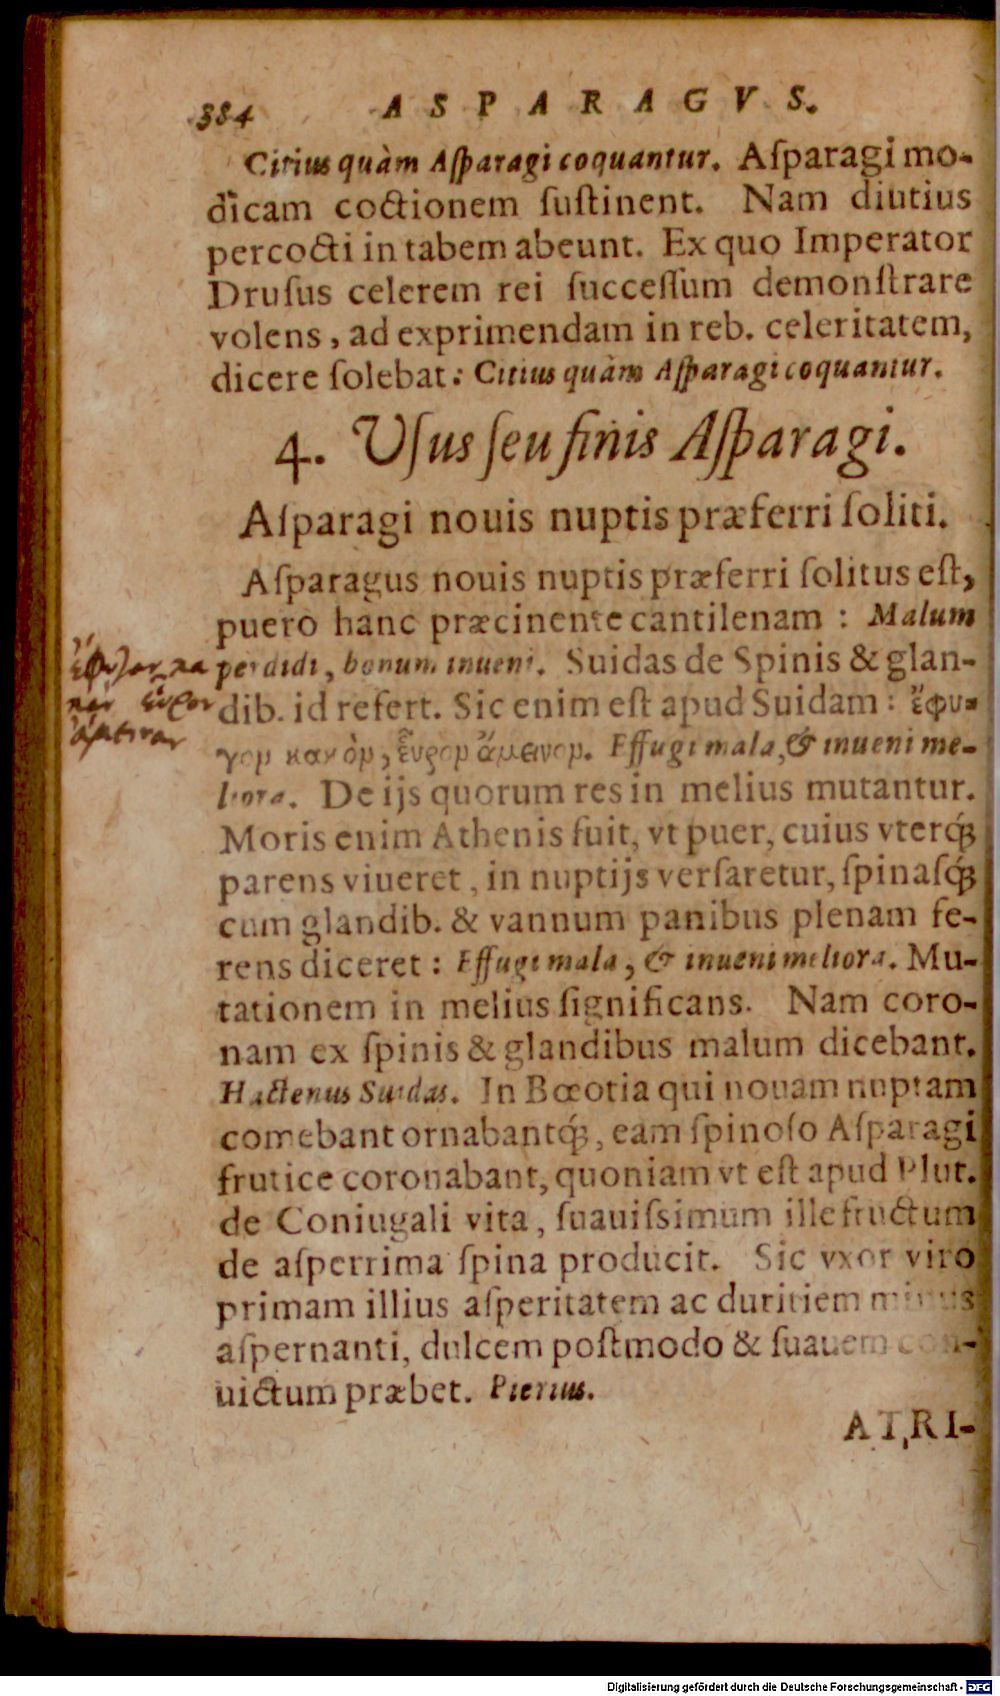 384 ASPARAGVS.
Citius quàm Aſparagi coquantur. Aſparagi mo-
dicam coctionem ſuſtinent. Nam diutius
percocti in tabem abeunt. Ex quo Imperator
Druſus celerem rei ſucceſſum demonſtrare
volens, ad exprimendam in reb. celeritatem,
dicere ſolebat: Citius quàm Aſparagi coquantur.
4. Vſus ſeu finis Aſparagi.
Aſparagi nouis nuptis præferri ſoliti.
Aſparagus nouis nuptis præferri ſolitus eſt,
puero hanc præcinente cantilenam: Malum
perdidi, bonum inueni. Suidas de Spinis & glan-
dib. id refert. Sic enim eſt apud Suidam: ἔφυ-
γον κακὸν, εὗρον ἄμεινον. Effugi mala, & inueni me-
liora. De ijs quorum res in melius mutantur.
Moris enim Athenis fuit, vt puer, cuius vterq́;
parens viueret, in nuptijs verſaretur, ſpinaſq́;
cum glandib. & vannum panibus plenam fe-
rens diceret: Effugi mala, & inueni meliora. Mu-
tationem in melius ſignificans. Nam coro-
nam ex ſpinis & glandibus malum dicebant.
Hactenus Suidas. In Bœotia qui nouam nuptam
comebant ornabantq́;, eam ſpinoſo Aſparagi
frutice coronabant, quoniam vt eſt apud Plut.
de Coniugali vita, ſuauiſsimum ille fructum
de aſperrima ſpina producit. Sic vxor viro
primam illius aſperitatem ac duritiem minus
aſpernanti, dulcem poſtmodo & ſuauem con-
uictum præbet. Pierius.
ATRI-
ἔφυγον κα
κὸν εὗρον
ἄμεινον
Digitalisierung gefördert durch die Deutsche Forschungsgemeinschaft - DFG